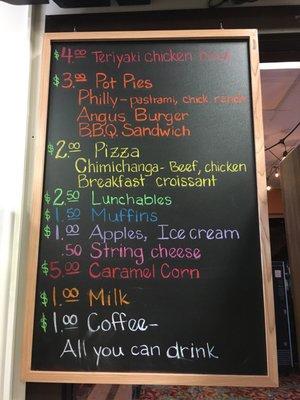 $4.00 Teriyaki chicken bowl
$3.00 Pot Pies
Philly - pastrami, chick. ranch
Angus Burger
B.B.Q. Sandwich
$2.00 Pizza
Chimichanga - Beef, chicken
Breakfast croissant
$2.50 Lunchables
$1.50 Muffins
$1.00 Apples, Ice cream
.50 String cheese
$5.00 Caramel Corn
$1.00 Milk
$1.00 Coffee-
All you can drink